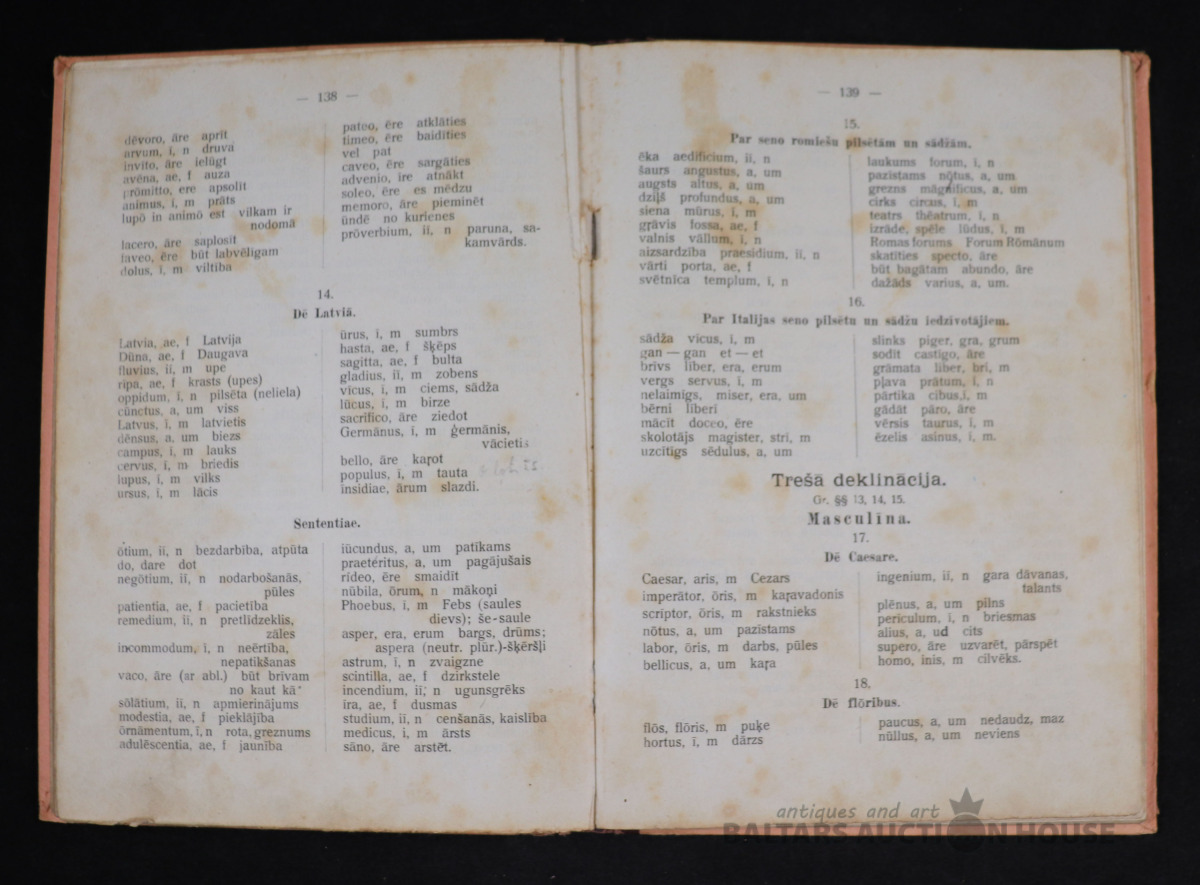 — 138 —
dēvoro, āre aprīt
arvum, ī, n druva
invīto, āre ielūgt
avēna, ae, f auza
prōmitto, ere apsolīt
animus, ī, m prāts
lupō in animō est vilkam ir
nodomā
lacero, āre saplosīt
faveo, ēre būt labvēlīgam
dolus, ī, m viltība
pateo, ēre atklāties
timeo, ēre baidīties
vel pat
caveo, ēre sargāties
advenio, īre atnākt
soleo, ēre es mēdzu
memoro, āre pieminēt
ūndē no kurienes
prōverbium, iī, n paruna, sa-
kamvārds.
14.
Dē Latviā.
Latvia, ae, f Latvija
Dūna, ae, f Daugava
fluvius, iī, m upe
rīpa, ae, f krasts (upes)
oppidum, ī, n pilsēta (neliela)
cūnctus, a, um viss
Latvus, ī, m latvietis
dēnsus, a, um biezs
campus, ī, m lauks
cervus, ī, m briedis
lupus, ī, m vilks
ursus, ī, m lācis
ūrus, ī, m sumbrs
hasta, ae, f šķēps
sagitta, ae, f bulta
gladius, iī, m zobens
vīcus, ī, m ciems, sādža
lūcus, ī, m birze
sacrifico, āre ziedot
Germānus, ī, m ģermānis,
vācietis
bello, āre kaŗot
populus, ī, m tauta
insidiae, ārum slazdi.
Sententiae.
ōtium, iī, n bezdarbība, atpūta
do, dare dot
negōtium, iī, n nodarbošanās,
pūles
patientia, ae, f pacietība
remedium, iī, n pretlīdzeklis,
zāles
incommodum, ī, n neērtība,
nepatikšanas
vaco, āre (ar abl.) būt brīvam
no kaut kā
sōlātium, iī, n apmierinājums
modestia, ae, f pieklājība
ōrnāmentum, ī, n rota, greznums
adulēscentia, ae, f jaunība
iūcundus, a, um patīkams
praetéritus, a, um pagājušais
rīdeo, ēre smaidīt
nūbila, ōrum, n mākoņi
Phoebus, ī, m Febs (saules
dievs); še-saule
asper, era, erum bargs, drūms;
aspera (neutr. plūr.)-šķēršļi
astrum, ī, n zvaigzne
scintilla, ae, f dzirkstele
incendium, iī, n ugunsgrēks
īra, ae, f dusmas
studium, iī, n cenšanās, kaislība
medicus, ī, m ārsts
sāno, āre arstēt.
— 139 —
15.
Par seno romiešu pilsētām un sādžām.
ēka aedificium, iī, n
šaurs angustus, a, um
augsts altus, a, um
dziļš profundus, a, um
siena mūrus, ī, m
grāvis fossa, ae, f
valnis vāllum, ī, n
aizsardzība praesidium, iī, n
vārti porta, ae, f
svētnīca templum, ī, n
laukums forum, ī, n
pazīstams nōtus, a, um
grezns māgnificus, a, um
cirks circus, ī, m
teatrs thēatrum, ī, n
izrāde, spēle lūdus, ī, m
Romas forums Forum Rōmānum
skatīties specto, āre
būt bagātam abundo, āre
dažāds varius, a, um.
16.
Par Italijas seno pilsētu un sādžu iedzīvotājiem.
sādža vīcus, ī, m
gan — gan et — et
brīvs līber, era, erum
vergs servus, ī, m
nelaimīgs, miser, era, um
bērni līberī
mācīt doceo, ēre
skolotājs magister, strī, m
uzcītīgs sēdulus, a, um
slinks piger, gra, grum
sodīt castīgo, āre
grāmata liber, brī, m
pļava prātum, ī, n
pārtika cibus, ī, m
gādāt pāro, āre
vērsis taurus, ī, m
ēzelis asinus, ī, m.
Trešā deklinācija.
Gr. §§ 13, 14, 15.
Masculīna.
17.
Dē Caesare.
Caesar, aris, m Cezars
imperātor, ōris, m kaŗavadonis
scrīptor, ōris, m rakstnieks
nōtus, a, um pazīstams
labor, ōris, m darbs, pūles
bellicus, a, um kaŗa
ingenium, iī, n gara dāvanas,
talants
plēnus, a, um pilns
perīculum, ī, n briesmas
alius, a, ud cits
supero, āre uzvarēt, pārspēt
homo, inis, m cilvēks.
18.
Dē flōribus.
flōs, flōris, m puķe
hortus, ī, m dārzs
paucus, a, um nedaudz, maz
nūllus, a, um neviens
antiques and art
BALTARS AUCTION HOUSE